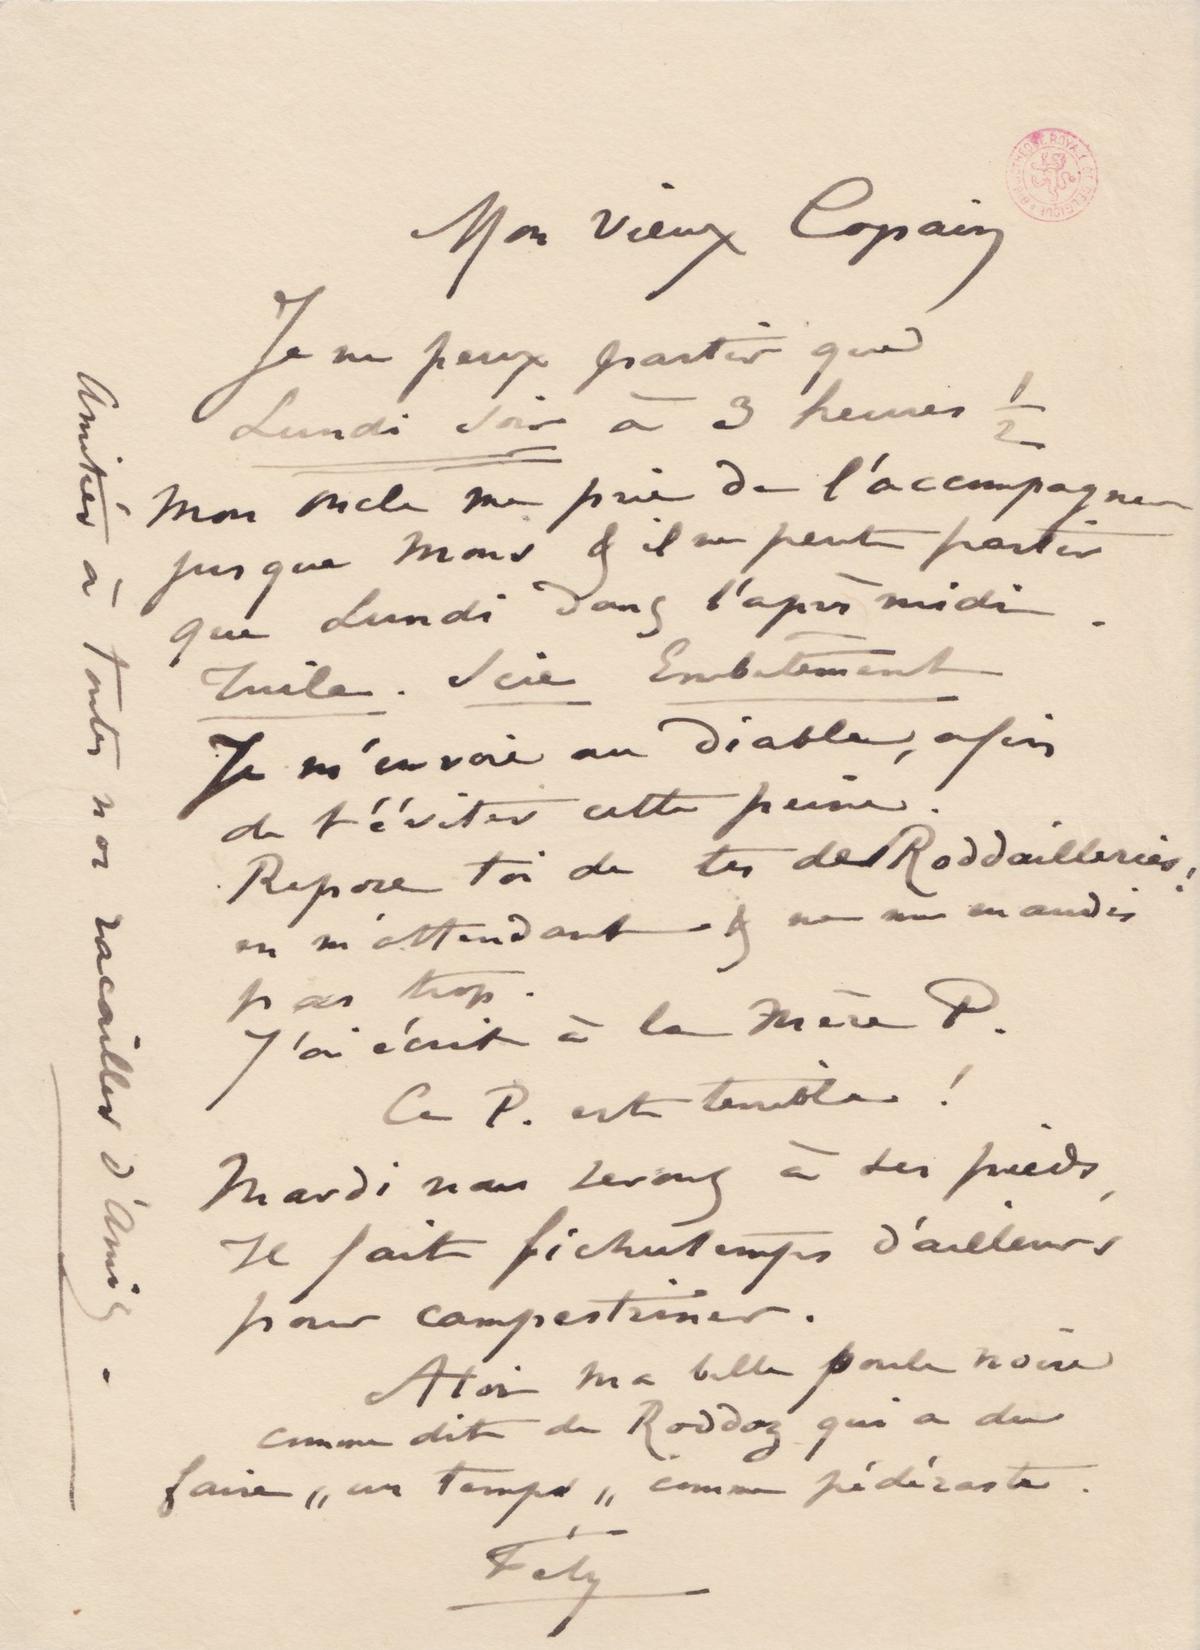 Mon vieux Copain
Je ne peux partir que
Lundi soir à 3 heures 1/2
Mon oncle me prie de l'accompagner
jusque Mons & il ne peut partir
que Lundi dans l'après midi.
Tuile. Scie Embetement
Je m'envoie au diable, afin
de t'éviter cette peine.
Repose toi de tes des Roddailleries!
en m'attendant & ne me maudis
pas trop.
J'ai écrit à la Mère P.
Ce P. est terrible!
Mardi nous serons à ses pieds,
Il fait fichutemps d'ailleurs
pour campestriner.
A toi ma belle poule noire
comme dit de Roddaz qui a du
faire „un temps„ comme pédéraste.
Fély
Amitiés à toutes nos racailles d'Amis.
BIBLIOTHÈQUE ROYALE DE BELGIQUE